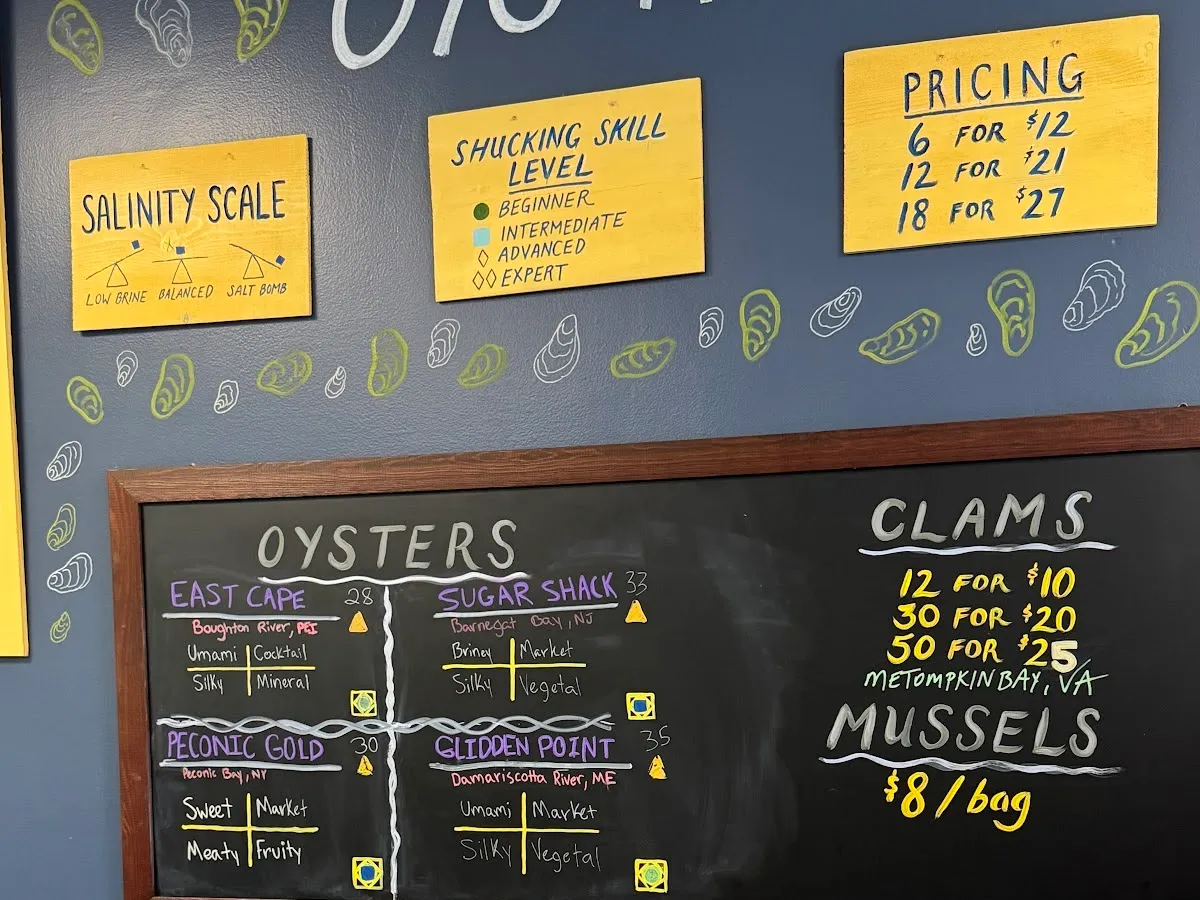 SALINITY SCALE
LOW BRINE BALANCED SALT BOMB
SHUCKING SKILL
LEVEL
BEGINNER
INTERMEDIATE
ADVANCED
EXPERT
PRICING
6 FOR $12
12 FOR $21
18 FOR $27
OYSTERS
EAST CAPE 28
Boughton River, PEI
Umami Cocktail
Silky Mineral
SUGAR SHACK 33
Barnegat Bay, NJ
Briney Market
Silky Vegetal
PECONIC GOLD 30
Peconic Bay, NY
Sweet Market
Meaty Fruity
GLIDDEN POINT 35
Damariscotta River, ME
Umami Market
Silky Vegetal
CLAMS
12 FOR $10
30 FOR $20
50 FOR $25
METOMPKIN BAY, VA
MUSSELS
$8/bag